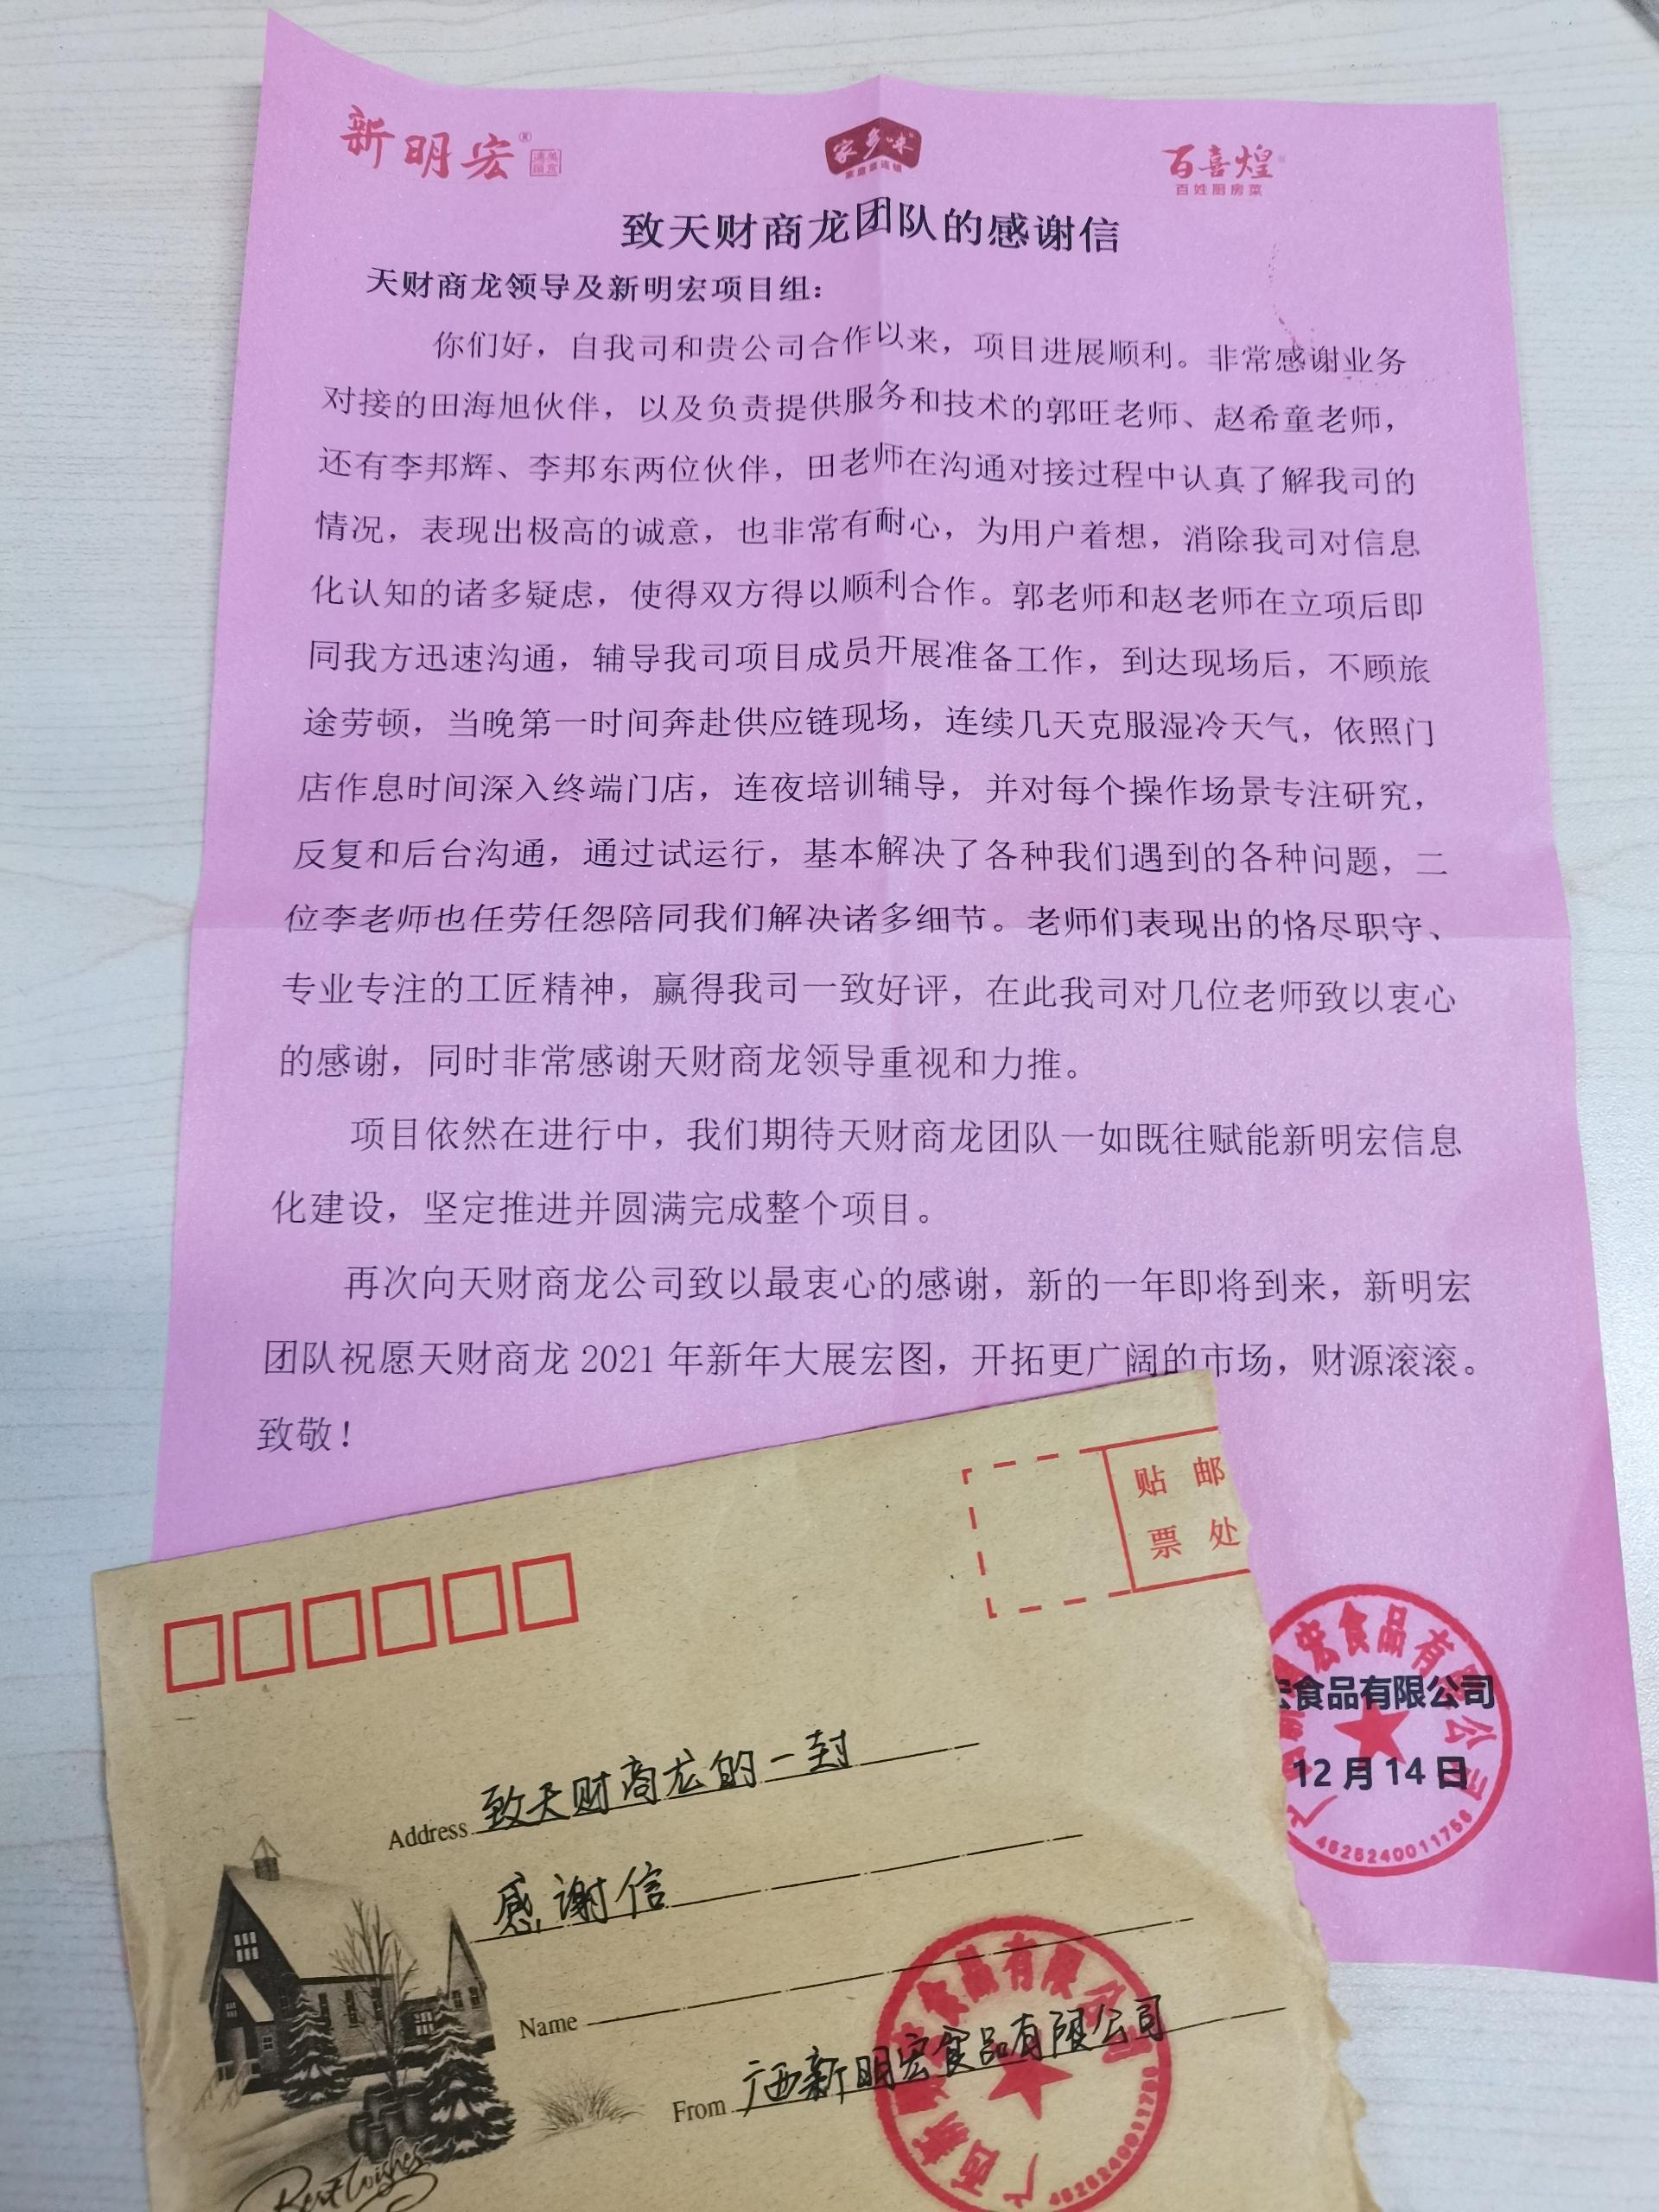 新明宏®
家乡味
百喜煌
百姓厨房菜
致天财商龙团队的感谢信
天财商龙领导及新明宏项目组：
你们好，自我司和贵公司合作以来，项目进展顺利。非常感谢业务
对接的田海旭伙伴，以及负责提供服务和技术的郭旺老师、赵希童老师，
还有李邦辉、李邦东两位伙伴，田老师在沟通对接过程中认真了解我司的
情况，表现出极高的诚意，也非常有耐心，为用户着想，消除我司对信息
化认知的诸多疑虑，使得双方得以顺利合作。郭老师和赵老师在立项后即
同我方迅速沟通，辅导我司项目成员开展准备工作，到达现场后，不顾旅
途劳顿，当晚第一时间奔赴供应链现场，连续几天克服湿冷天气，依照门
店作息时间深入终端门店，连夜培训辅导，并对每个操作场景专注研究，
反复和后台沟通，通过试运行，基本解决了各种我们遇到的各种问题，二
位李老师也任劳任怨陪同我们解决诸多细节。老师们表现出的恪尽职守、
专业专注的工匠精神，赢得我司一致好评，在此我司对几位老师致以衷心
的感谢，同时非常感谢天财商龙领导重视和力推。
项目依然在进行中，我们期待天财商龙团队一如既往赋能新明宏信息
化建设，坚定推进并圆满完成整个项目。
再次向天财商龙公司致以最衷心的感谢，新的一年即将到来，新明宏
团队祝愿天财商龙 2021 年新年大展宏图，开拓更广阔的市场，财源滚滚。
致敬！
宏食品有限公司
12 月 14 日
4526240011756
贴 邮
票 处
Address 致天财商龙的一封
感谢信
Name
From 广西新明宏食品有限公司
Best Wishes